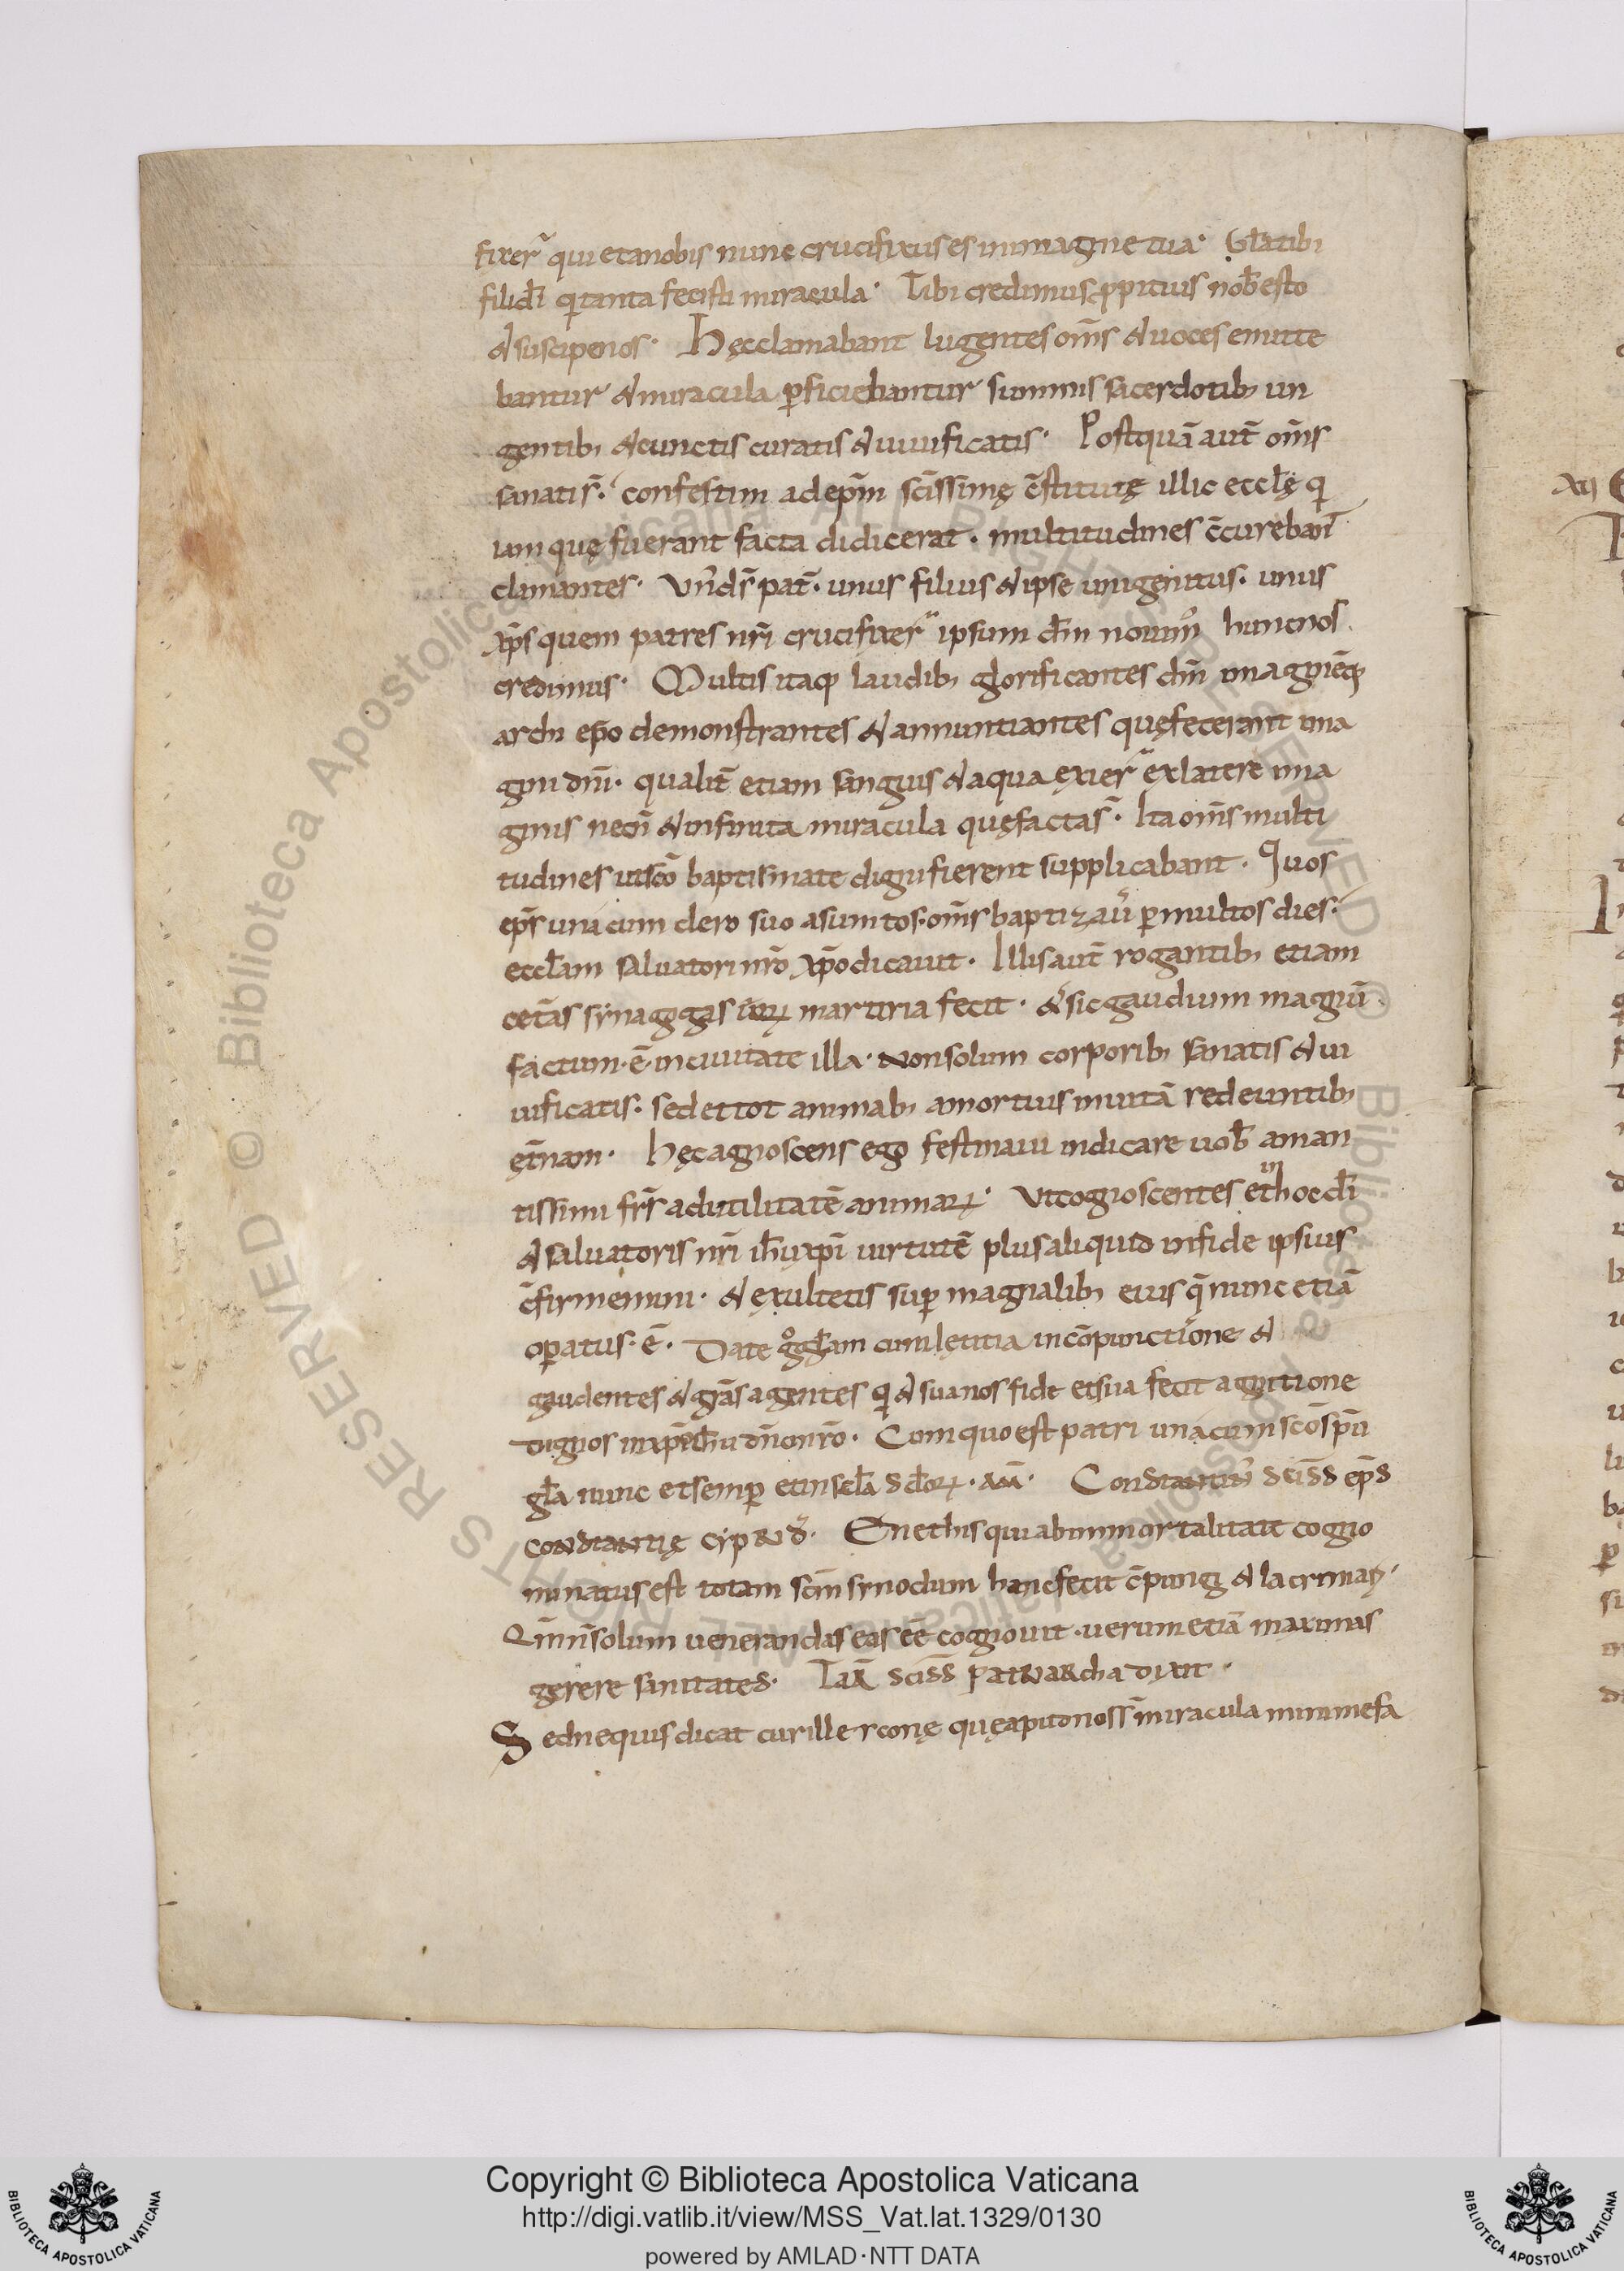 fixer̃ qui etanobis nunc crucifixus es inimagine tua· Gła tibi
filidi̅ qi tanta fecisti miracula· Tibi credimus ꝓpitius nob̅ esto
& suscipenos· Hęcclamabant lugentes om̅s & uoces emitte
bantur & miracula ꝑficiebantur summis sacerdotib; un
gentib; & cunctis curatis & uiuificatis· Postquā aut̅ om̅s
sanatis̅· confestim ad ep̅m sc̅issimę c̅stitutę illic eccl̅ę qi
iam quę fuerant facta didicerat· multitudines c̅curebant̅
clamantes· Vn̅ ds̅ pat̅· unus filius & ipse unigenitus· unus
xp̅s quem patres nr̅i crucifixer̃ ipsum dm̅ nouim᷒ huncnos
credimus· Multis itaq; laudib; glorificantes dm̅ imaginēq;
archi ep̅o demonstrantes & annuntiantes quęfecerant ima
gini dni̅· qualit̅ etiam sanguis & aqua exier̃ ex latere ima
ginis necn̅ & infinita miracula quęfactas̅· Ita om̅s multi
tudines utsc̅o baptismate dignifierent supplicabant· Quos
ep̅s una cum clero suo asumtos· om̅s baptizau̅ ꝑ multos dies·
eccl̅am saluatori nr̅o xp̅o dicauit· Illis aut̅ rogantib; etiam
cet̅as synagogas ior̅ꝝ martiria fecit· & sic gaudium magnū
factum· ē· inciuitate illa· Nonsolum corporib; sanatis & ui
uificatis· sed et tot animab; amortuis inuitā redeuntib;
ęt̅nam· Hęc agnoscens ego festinaui indicare uob̅ aman
tissimi frs̅ adutilitatē animaꝝ· Vtcognoscentes et in hoc di̅
& saluatoris nr̅i ih̅u xp̅i uirtutē plus aliquid infide ipsius
c̅firmemini· & exultetis suꝑ magnalib; eius q̅ nunc etiā
oꝑatus· ē· Date gł̅am cum lętitia incōpunctione &
gaudentes & gr̅as agentes qi & suanos fide et sua fecit agnitione
dignos inxp̅o ih̅u dn̅o nr̅o· Cum quo est patri una cum sc̅o sp̅u
gl̅a nunc et semꝑ et in scl̅a scl̅oꝝ· am̅· Constantin᷒ sciss̅ ep̅s
constantię cypri d̅· En et his qui ab inmortalitate cogno
minatus est totam sc̅m synodum hanc fecit c̅pungi & lacrimaꝛi·
Qm̅ n̅ solum uenerandas eas eē cognouit· uerum etiā maximas
gerere sanitates· Tar̅ sciss̅ patriarcha dixit·
Sed nequis dicat cur ille rconę quęapud nos s̅ miracula minime fa
Copyright © Biblioteca Apostolica Vaticana
http://digi.vatlib.it/view/MSS_Vat.lat.1329/0130
powered by AMLAD·NTT DATA